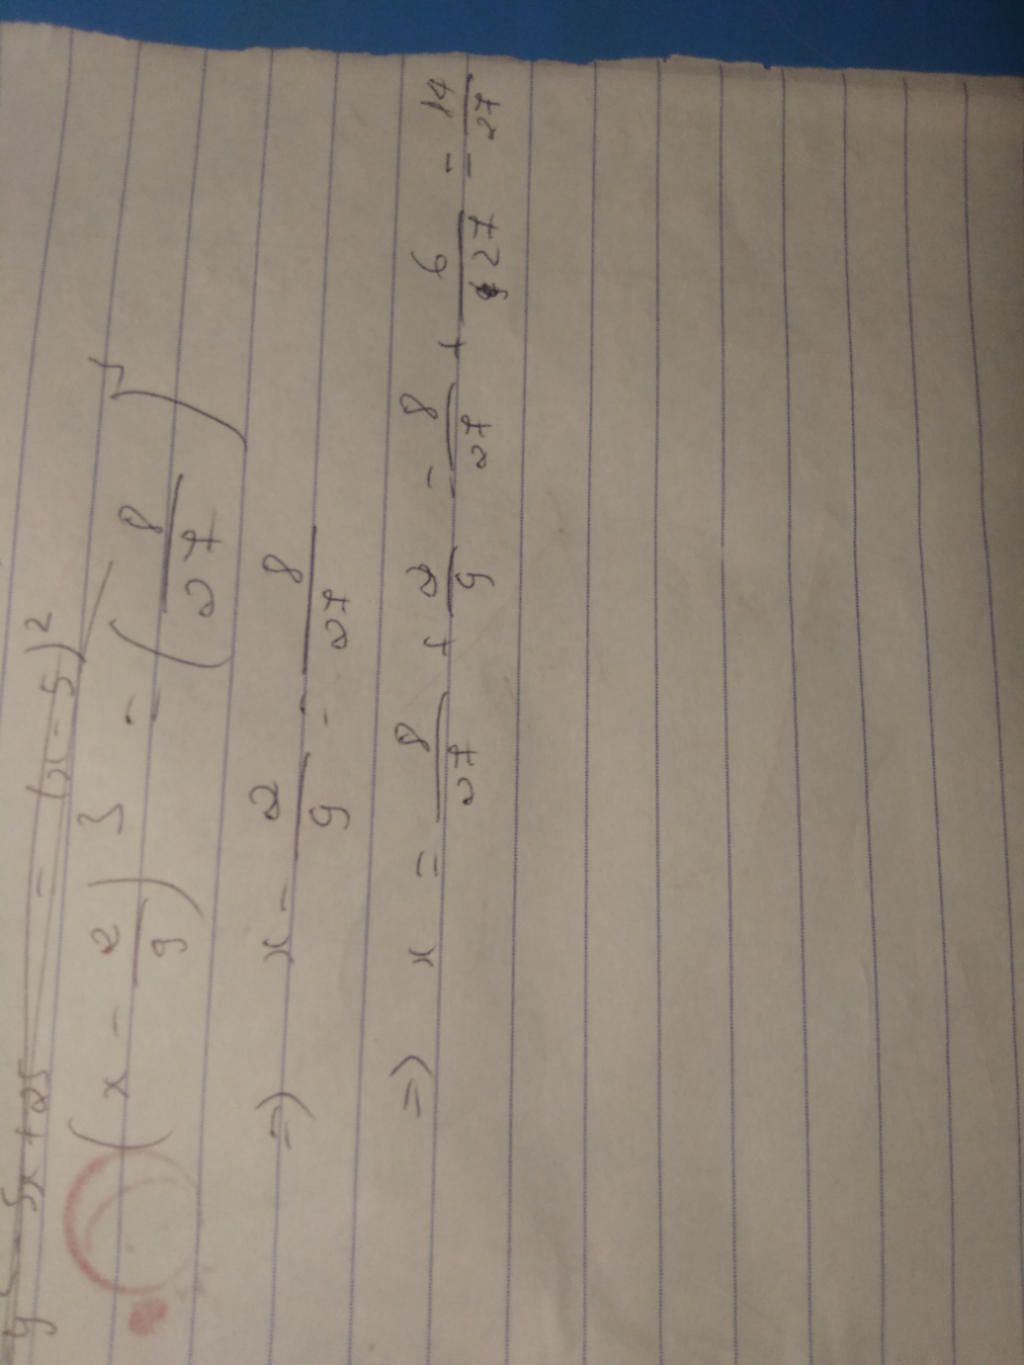 5x + 25 = (x - 5)²
(x - 2/9)³ = (8/27)
=) x - 2/9 = 8/27
=) x = 8/27 + 2/9 = 8/27 + 6/27 = 14/27